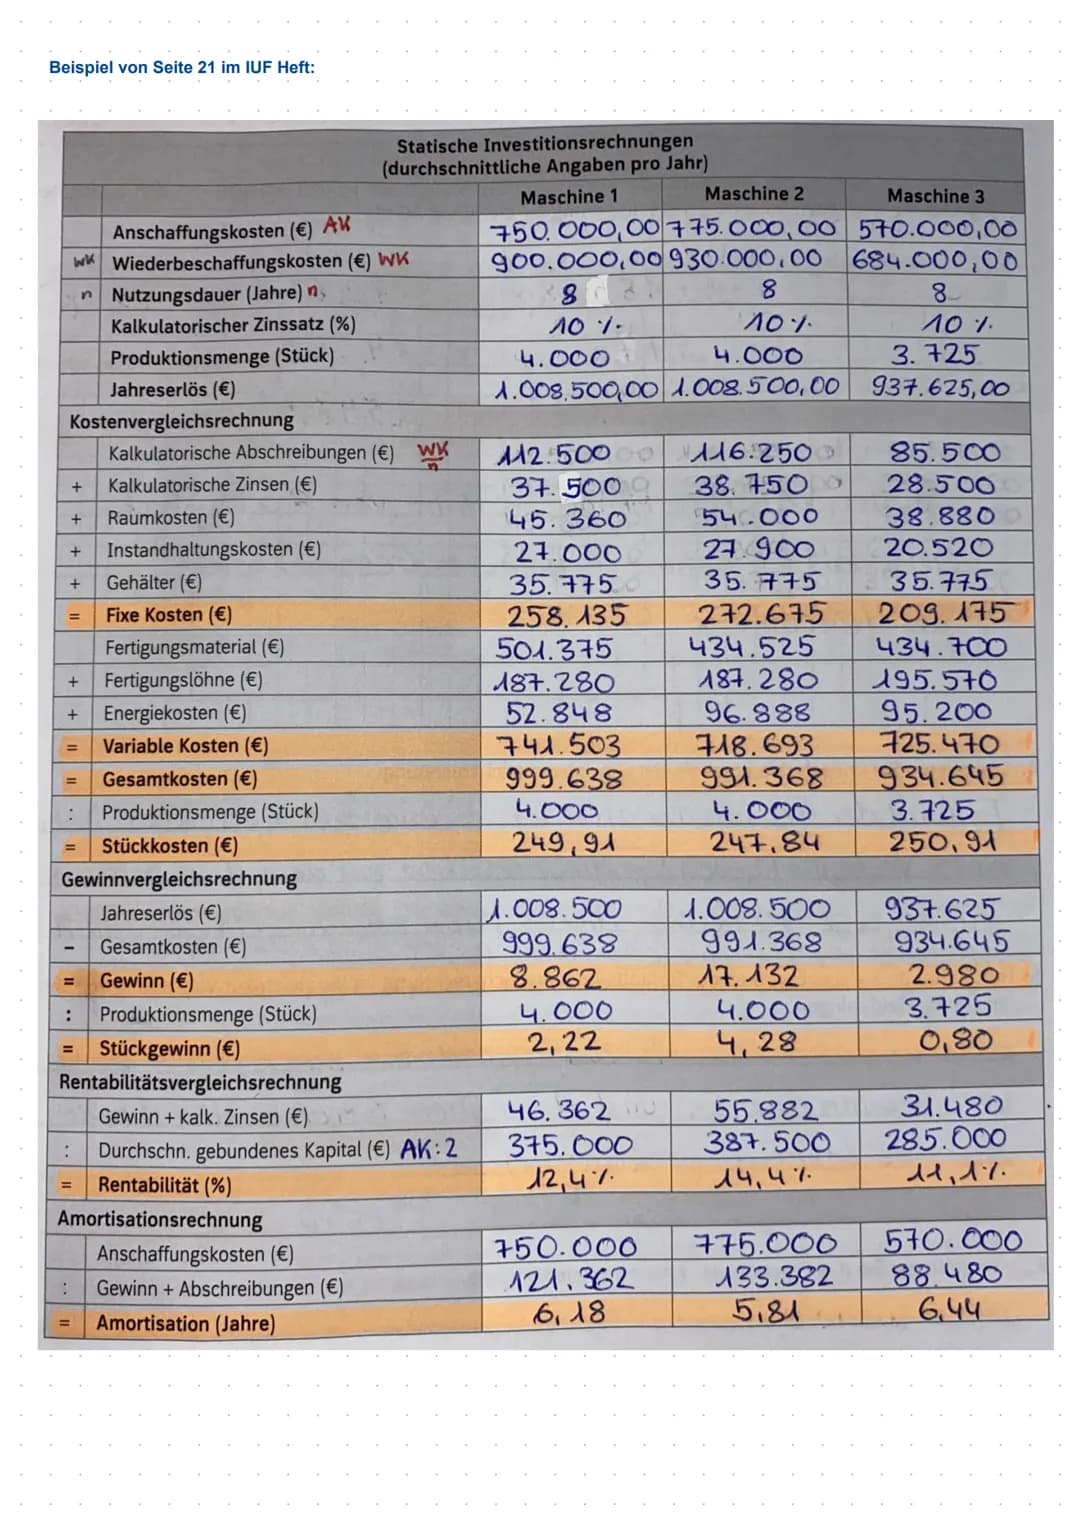 Beispiel von Seite 21 im IUF Heft:
Statische Investitionsrechnungen
(durchschnittliche Angaben pro Jahr)
Maschine 1 Maschine 2 Maschine 3
Anschaffungskosten (€) AK 750.000,00 775.000,00 570.000,00
WK Wiederbeschaffungskosten (€) WK 900.000,00 930.000,00 684.000,00
n Nutzungsdauer (Jahre) n 8 8 8
Kalkulatorischer Zinssatz (%) 10 % 10 % 10 %
Produktionsmenge (Stück) 4.000 4.000 3.725
Jahreserlös (€) 1.008.500,00 1.008.500,00 937.625,00
Kostenvergleichsrechnung
Kalkulatorische Abschreibungen (€) WK/n 112.500 116.250 85.500
+ Kalkulatorische Zinsen (€) 37.500 38.750 28.500
+ Raumkosten (€) 45.360 54.000 38.880
+ Instandhaltungskosten (€) 27.000 27.900 20.520
+ Gehälter (€) 35.775 35.775 35.775
= Fixe Kosten (€) 258.135 272.675 209.175
Fertigungsmaterial (€) 501.375 434.525 434.700
+ Fertigungslöhne (€) 187.280 187.280 195.570
+ Energiekosten (€) 52.848 96.888 95.200
= Variable Kosten (€) 741.503 718.693 725.470
= Gesamtkosten (€) 999.638 991.368 934.645
: Produktionsmenge (Stück) 4.000 4.000 3.725
= Stückkosten (€) 249,91 247,84 250,91
Gewinnvergleichsrechnung
Jahreserlös (€) 1.008.500 1.008.500 937.625
– Gesamtkosten (€) 999.638 991.368 934.645
= Gewinn (€) 8.862 17.132 2.980
: Produktionsmenge (Stück) 4.000 4.000 3.725
= Stückgewinn (€) 2,22 4,28 0,80
Rentabilitätsvergleichsrechnung
Gewinn + kalk. Zinsen (€) 46.362 55.882 31.480
: Durchschn. gebundenes Kapital (€) AK:2 375.000 387.500 285.000
= Rentabilität (%) 12,4% 14,4% 11,1%
Amortisationsrechnung
Anschaffungskosten (€) 750.000 775.000 570.000
: Gewinn + Abschreibungen (€) 121.362 133.382 88.480
= Amortisation (Jahre) 6,18 5,81 6,44